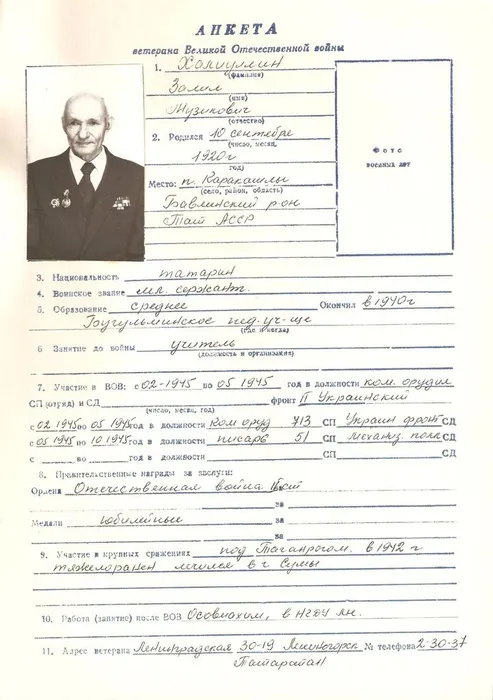 АНКЕТА
ветерана Великой Отечественной войны
1. Халиуллин
(фамилия)
Залил
(имя)
Музипович
(отчество)
2. Родился 10 сентября
(число, месяц,
1920г
год)
Место: п. Каракашлы
(село, район, область)
Бавлинский р-он
Тат АССР
Фото
военных лет
3. Национальность татарин
4. Воинское звание мл. сержант.
5. Образование среднее Окончил в 1940г
Бугульминское пед-уч-ще
(где и когда)
6 Занятие до войны учитель
(должность и организация)
7. Участие в ВОВ: с 02-1945 по 05 1945 год в должности ком. орудия
СП (отряд) и СД фронт II Украинский
(число, месяц, год)
с 02 1945 по 05 1945 год в должности Ком оруд 713 СП Украин фронт СД
с 05 1945 по 10 1945 год в должности писарь 51 СП механиз. полк СД
с во год в должности СП СД
8. Правительственные награды за заслуги:
Ордена Отечественная война
за
Медали юбилейные за
за
9. Участие в крупных сражениях под Таганрогом. в 1942 г
тяжелоранен лечился в г Сумы
10. Работа (занятие) после ВОВ Осовиахим, в НГДУ
11. Адрес ветерана Ленинградская 30-19 Лениногорск № телефона 2-30-37
Татарстан